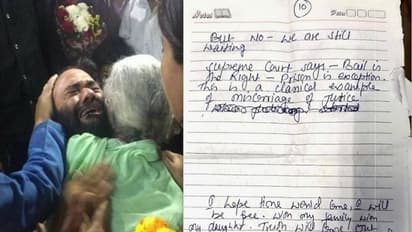 10
But No - we are still
waiting
Supreme Court says - Bail is
the Right - Prison is exception.
This is a classical example
of miscarriage of Justice
I hope time would come, I will
be free. with my family with
my daught. Truth will come out